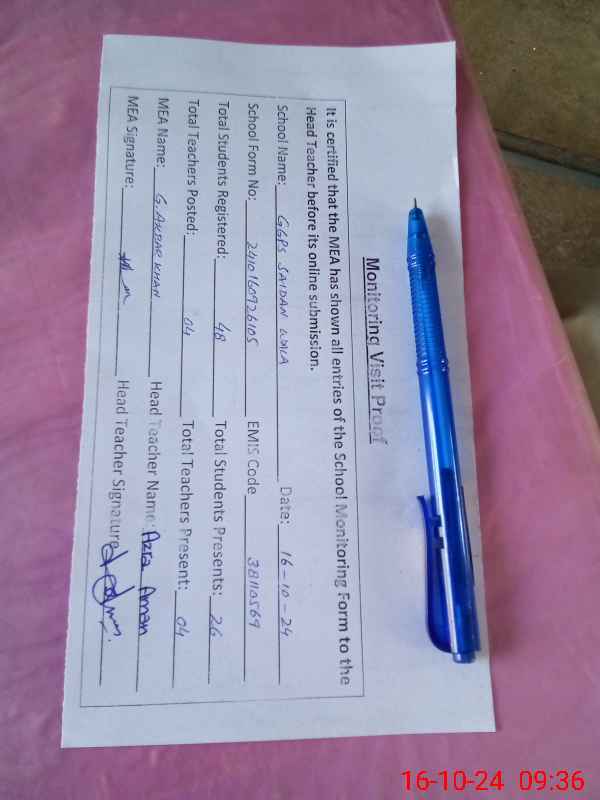 Monitoring Visit Proof
It is certified that the MEA has shown all entries of the School Monitoring Form to the
Head Teacher before its online submission.
School Name: GGPS SAIDAN WALA Date: 16-10-24
School Form No: 2410160926105 EMIS Code 38110569
Total Students Registered: 48 Total Students Presents: 26
Total Teachers Posted: 04 Total Teachers Present: 04
MEA Name: G. AKBAR KHAN Head Teacher Name: Azra Aman
MEA Signature: Head Teacher Signature
16-10-24 09:36